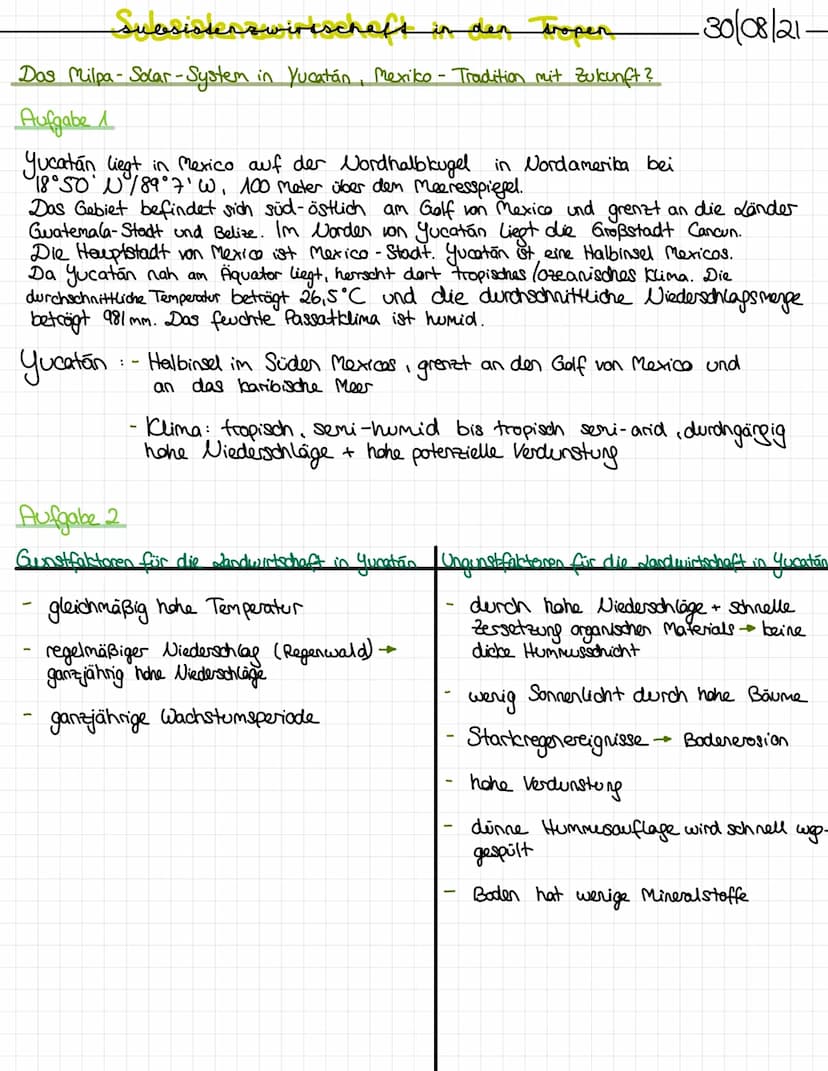 Subsistenzwirtschaft in den Tropen
30/08/21
Das Milpa-Solar-System in Yucatán, Mexiko - Tradition mit Zukunft?
Aufgabe 1
Yucatán liegt in Mexico auf der Nordhalbkugel in Nordamerika bei
18°50' N/89°7' W, 100 Meter über dem Meeresspiegel.
Das Gebiet befindet sich süd-östlich am Golf von Mexico und grenzt an die Länder
Guatemala-Stadt und Belize. Im Norden von Yucatán liegt die Großstadt Cancun.
Die Hauptstadt von Mexico ist Mexico-Stadt. Yucatán ist eine Halbinsel Mexicos.
Da Yucatán nah am Äquator liegt, herrscht dort tropisches/ozeanisches Klima. Die
durchschnittliche Temperatur beträgt 26,5°C und die durchschnittliche Niederschlagsmenge
beträgt 981mm. Das feuchte Passatklima ist humid.
Yucatán : - Halbinsel im Süden Mexicos, grenzt an den Golf von Mexico und
an das karibische Meer
- Klima: tropisch, semi-humid bis tropisch semi-arid, durchgängig
hohe Niederschläge + hohe potenzielle Verdunstung
Aufgabe 2
Gunstfaktoren für die Landwirtschaft in Yucatán
- gleichmäßig hohe Temperatur
- regelmäßiger Niederschlag (Regenwald) →
ganzjährig hohe Niederschläge
- ganzjährige Wachstumsperiode
Ungunstfaktoren für die Landwirtschaft in Yucatán
- durch hohe Niederschläge + schnelle
Zersetzung organischen Materials → keine
dicke Hummusschicht
- wenig Sonnenlicht durch hohe Bäume
- Starkregenereignisse → Bodenerosion
- hohe Verdunstung
- dünne Hummusauflage wird schnell weg-
gespült
- Boden hat wenige Mineralstoffe